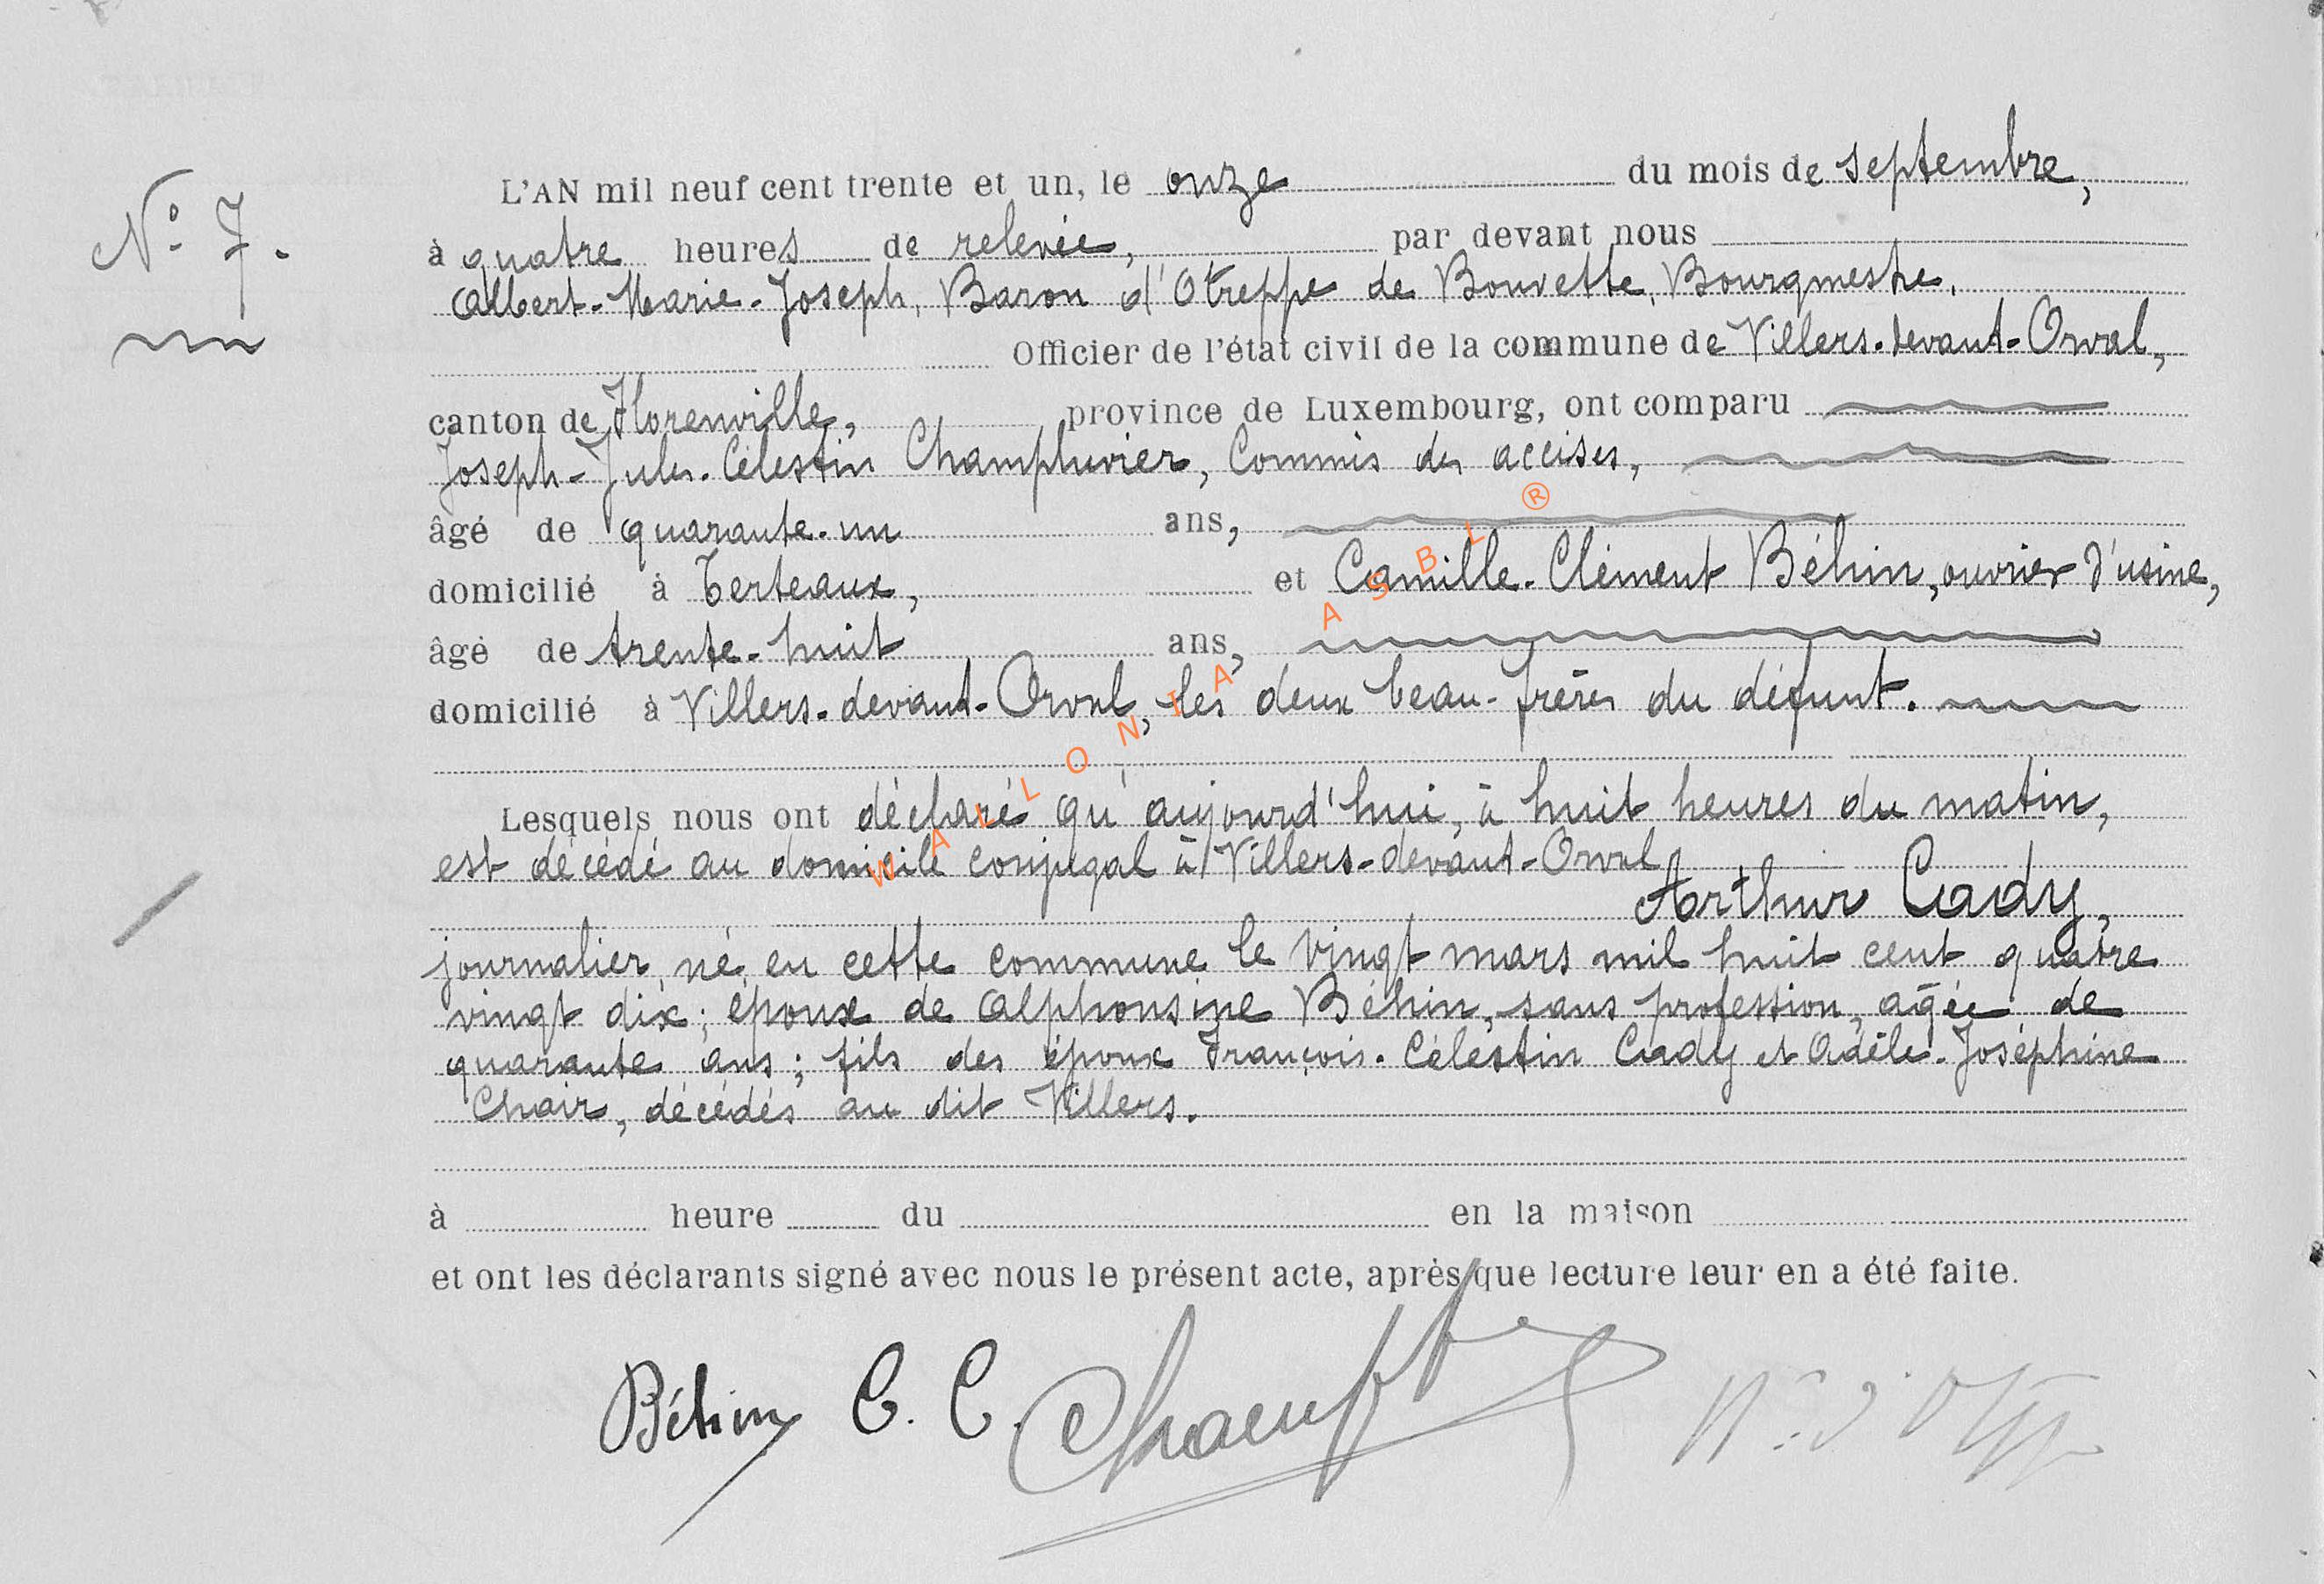 N° 7.
L'AN mil neuf cent trente et un, le onze du mois de septembre,
à quatre heures de relevée, par devant nous
Albert-Marie-Joseph, Baron d'Otreppe de Bouvette, Bourgmestre,
Officier de l'état civil de la commune de Villers-devant-Orval,
canton de Florenville, province de Luxembourg, ont comparu
Joseph-Jules-Célestin Champluvier, Commis des accises,
âgé de quarante-un ans,
domicilié à Terteaux, et Camille-Clément Béhin, ouvrier d'usine,
âgé de trente-huit ans,
domicilié à Villers-devant-Orval, les deux beau-frères du défunt.
Lesquels nous ont déclaré qu'aujourd'hui, à huit heures du matin,
est décédé au domicile conjugal à Villers-devant-Orval
Arthur Cady,
journalier, né en cette commune le vingt mars mil huit cent quatre
vingt dix; époux de Alphonsine Béhin, sans profession, agée de
quarante ans; fils des époux François-Célestin Cady et Adèle-Joséphine
Chair, décédés au dit Villers.
à heure du en la maison
et ont les déclarants signé avec nous le présent acte, après que lecture leur en a été faite.
Béhin C. C.
WALLONIA ASBL ®